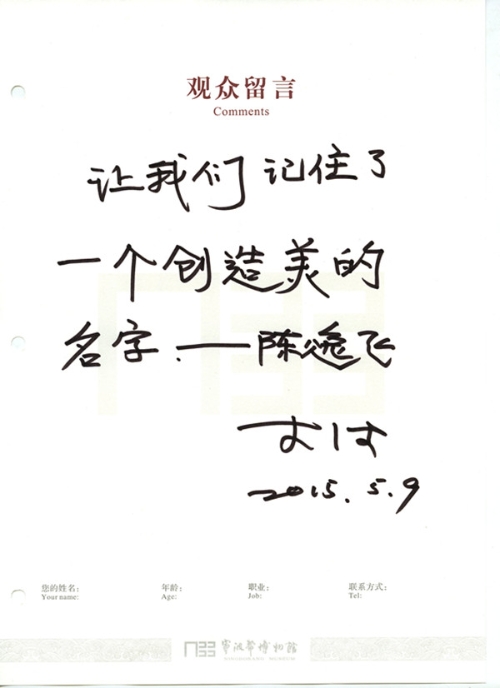 观众留言
Comments
让我们记住了
一个创造美的
名字.——陈逸飞
2015.5.9
您的姓名: 年龄: 职业: 联系方式:
Your name: Age: Job: Tel:
宁波帮博物馆
NINGBOBANG MUSEUM